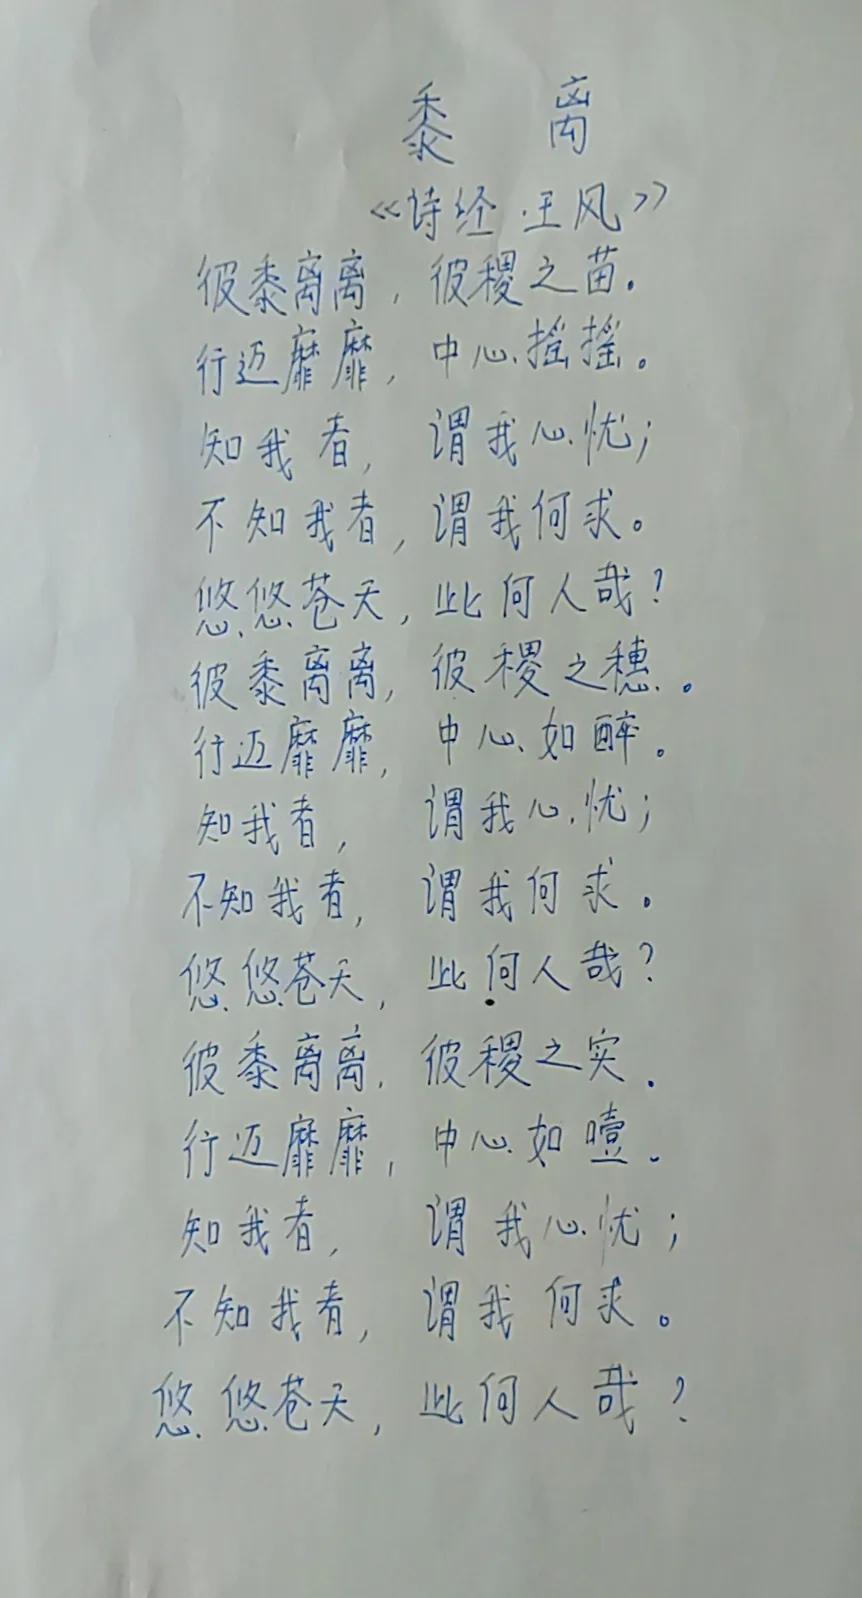 黍 离
《诗经·王风》
彼黍离离，彼稷之苗。
行迈靡靡，中心摇摇。
知我者，谓我心忧；
不知我者，谓我何求。
悠悠苍天，此何人哉？
彼黍离离，彼稷之穗。
行迈靡靡，中心如醉。
知我者，谓我心忧；
不知我者，谓我何求。
悠悠苍天，此何人哉？
彼黍离离，彼稷之实。
行迈靡靡，中心如噎。
知我者，谓我心忧；
不知我者，谓我何求。
悠悠苍天，此何人哉？